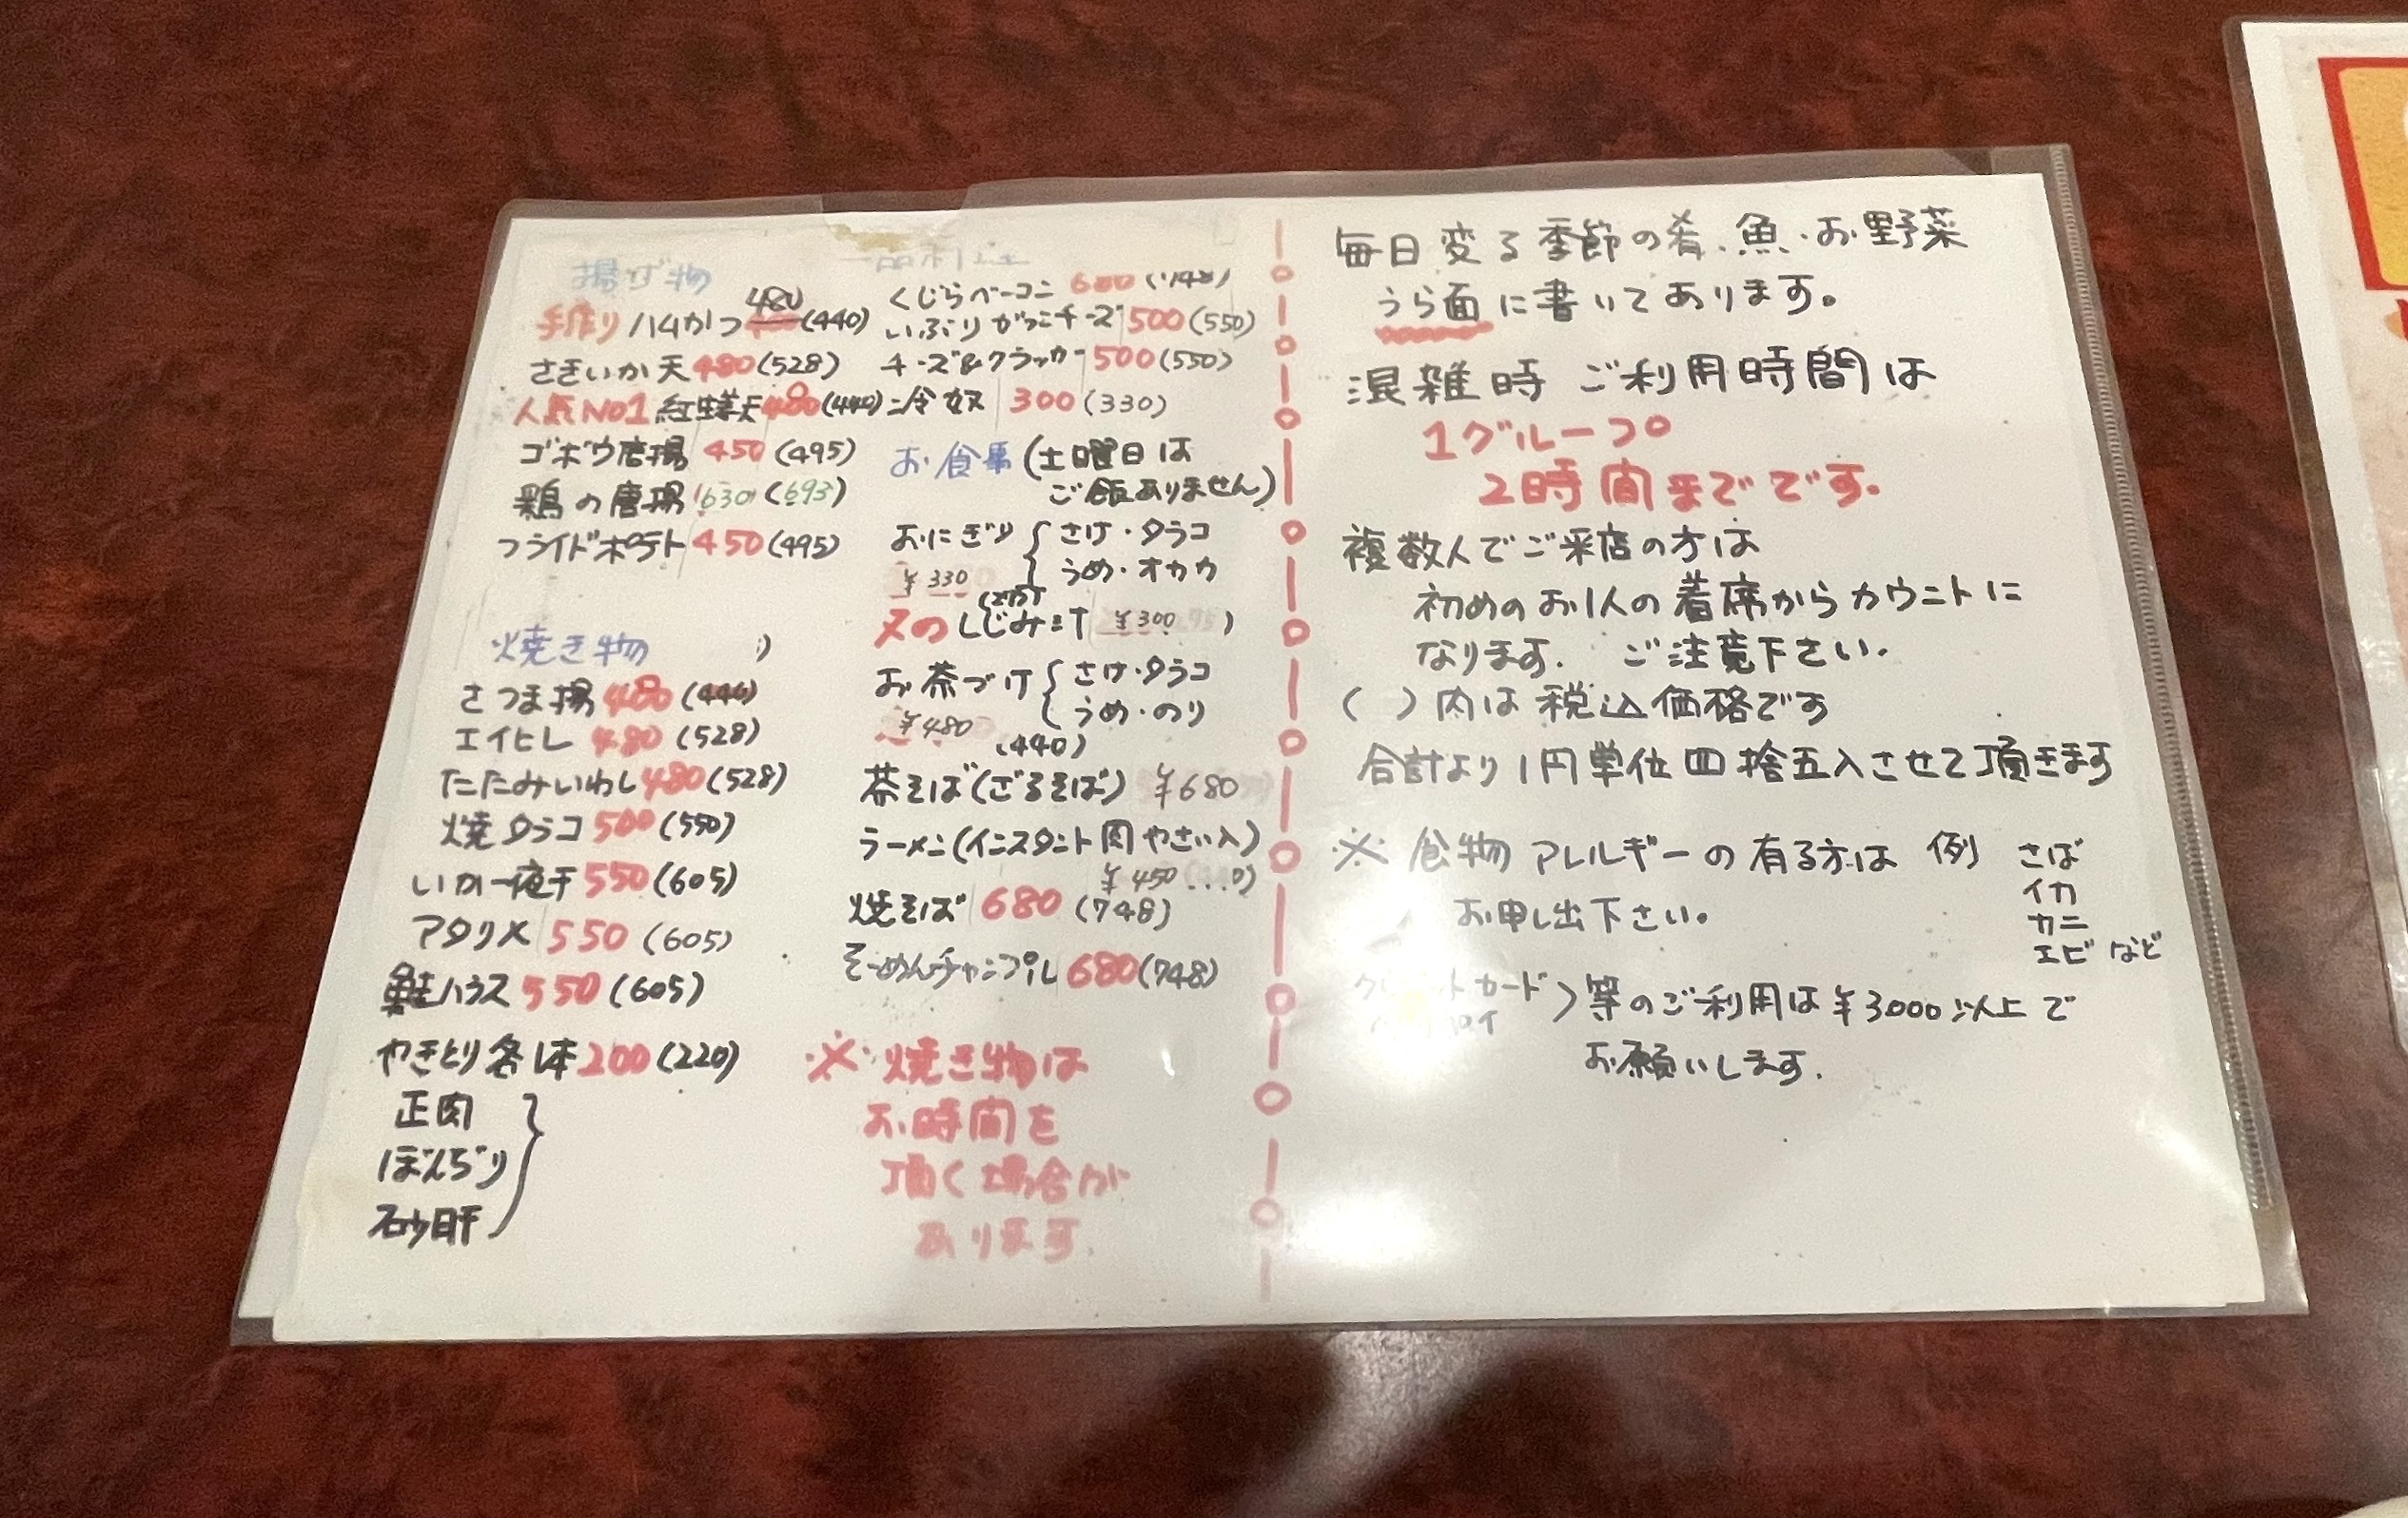 揚げ物
手作りハムかつ 480 (440)
さきいか天 480 (528)
人気No1 紅生姜天 480 (440)
ゴボウ唐揚 450 (495)
鶏の唐揚 630 (693)
フライドポテト 450 (495)
焼き物
さつま揚 480 (440)
エイヒレ 480 (528)
たたみいわし 480 (528)
焼タラコ 500 (550)
いか一夜干 550 (605)
アタリメ 550 (605)
鮭ハラス 550 (605)
やきとり各1本 200 (220)
正肉
ぼんぢり
砂肝
一品料理
くじらベーコン 680 (748)
いぶりがっこチーズ 500 (550)
チーズ&クラッカー 500 (550)
冷奴 300 (330)
お食事 (土曜日は
ご飯ありません)
おにぎり さけ・タラコ
¥330 うめ・オカカ
しじみ汁 ¥300
お茶づけ さけ・タラコ
¥480 うめ・のり
(440)
茶そば(ざるそば) ¥680
ラーメン(インスタント肉やさい入)
¥450
焼そば 680 (748)
そーめんチャンプル 680 (748)
※焼き物は
お時間を
頂く場合が
あります
毎日変る季節の肴、魚・お野菜
うら面に書いてあります。
混雑時 ご利用時間は
1グループ
2時間までです。
複数人でご来店の方は
初めのお1人の着席からカウントに
なります. ご注意下さい.
( )内は税込価格です
合計より1円単位四捨五入させて頂きます
※食物アレルギーの有る方は 例 さば
イカ
お申し出下さい。 カニ
エビなど
カード 等のご利用は¥3000以上で
お願いします.